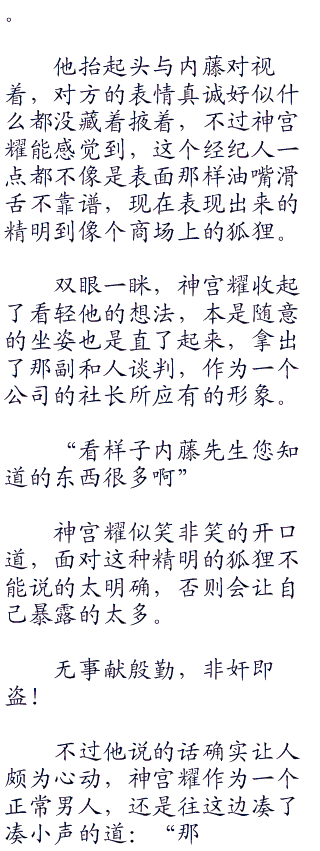 。
他抬起头与内藤对视
着，对方的表情真诚好似什
么都没藏着掖着，不过神宫
耀能感觉到，这个经纪人一
点都不像是表面那样油嘴滑
舌不靠谱，现在表现出来的
精明到像个商场上的狐狸。
双眼一眯，神宫耀收起
了看轻他的想法，本是随意
的坐姿也是直了起来，拿出
了那副和人谈判，作为一个
公司的社长所应有的形象。
“看样子内藤先生您知
道的东西很多啊”
神宫耀似笑非笑的开口
道，面对这种精明的狐狸不
能说的太明确，否则会让自
己暴露的太多。
无事献殷勤，非奸即
盗！
不过他说的话确实让人
颇为心动，神宫耀作为一个
正常男人，还是往这边凑了
凑小声的道：“那